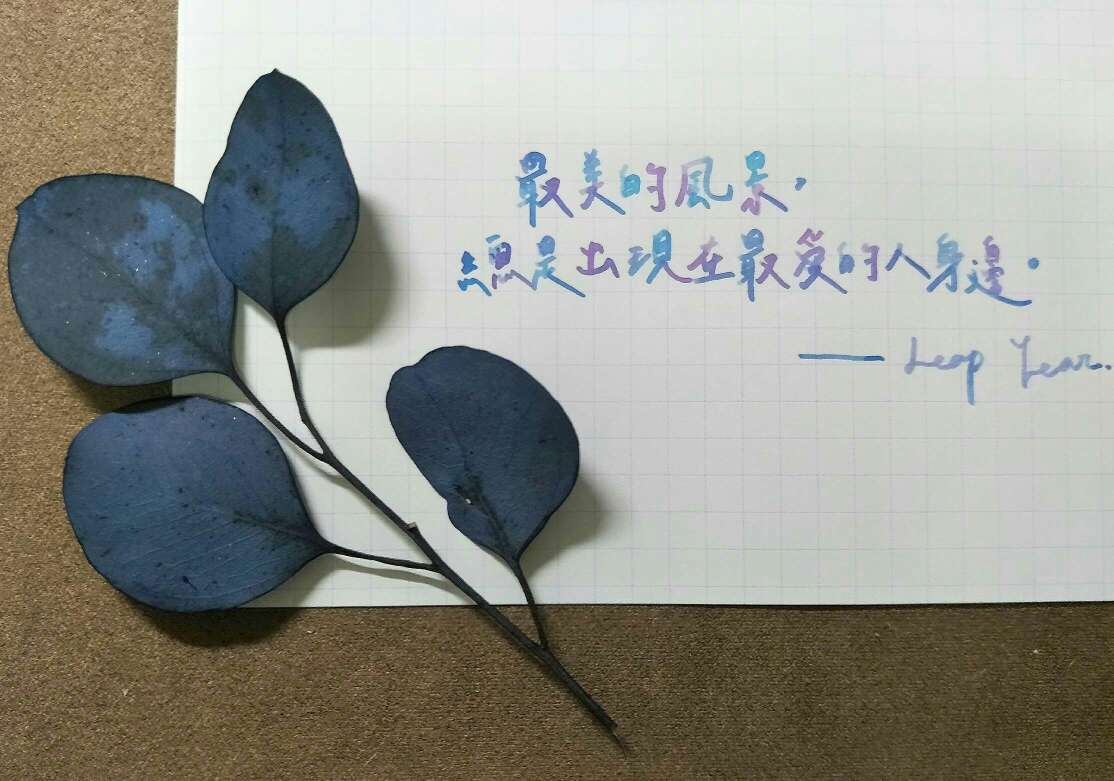 最美的風景，
總是出現在最愛的人身邊。
—— Leap Year.